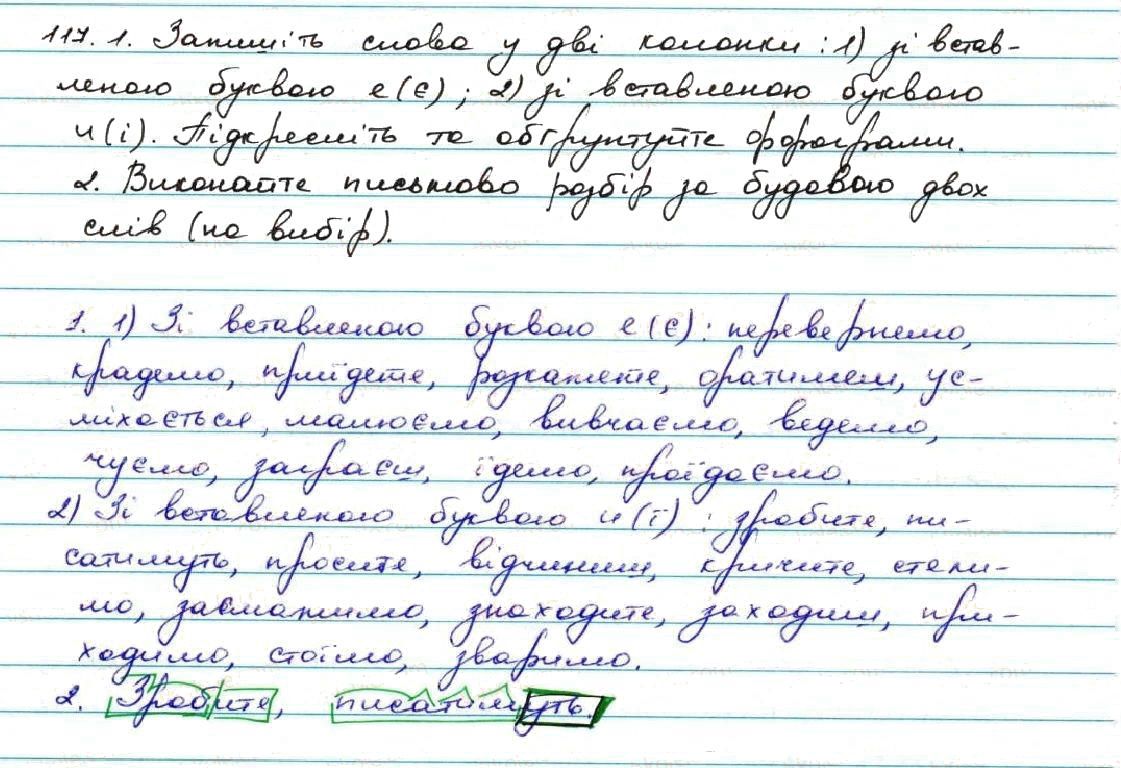 117. 1. Запишіть слова у дві колонки: 1) зі встав-
леною буквою е (є); 2) зі вставленою буквою
и (і). Підкресліть та обґрунтуйте орфограми.
2. Виконайте письмово розбір за будовою двох
слів (на вибір).
1. 1) Зі вставленою буквою е (є): перевернемо,
крадемо, прийдете, розкажете, оратимеш, ус-
міхається, малюємо, вивчаємо, ведемо,
чуємо, заграєш, їдемо, проїдаємо.
2) Зі вставленою буквою и (ї): зробите, пи-
сатимуть, просите, відчиниш, кричите, стели-
мо, засмажимо, знаходите, заходиш, при-
ходимо, стоїмо, зваримо.
2. Зробите, писатимуть.